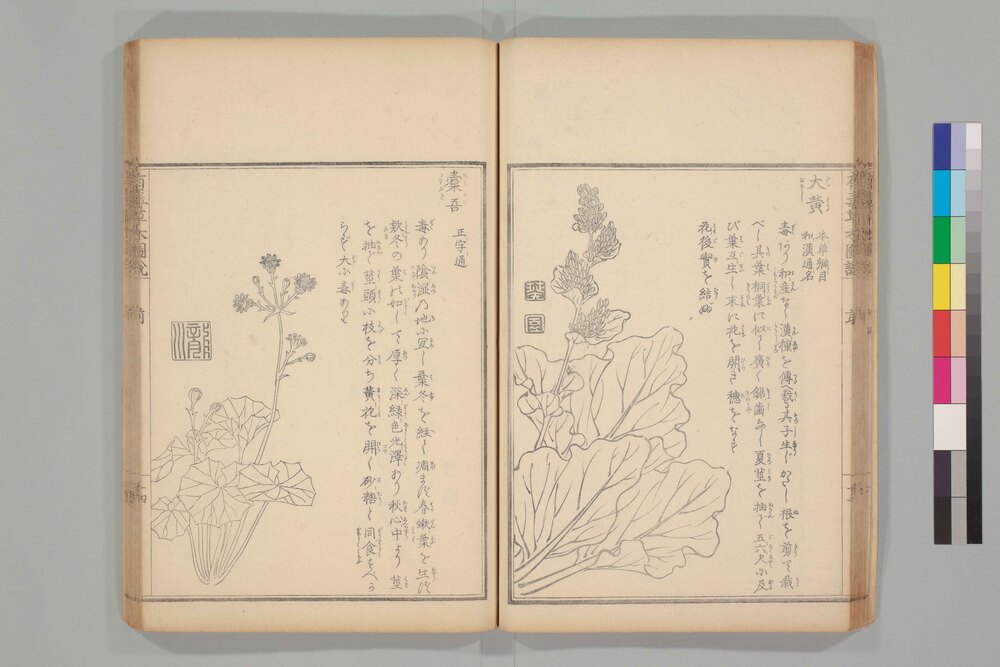 大黄
本草綱目
和漢通名
毒あり和産なし漢種を傳へ栽る其子生じかたし根を剪て栽
べし其葉桐葉に似て廣く鋸齒なし夏莖を抽く五六尺小及
び葉互生し末に花を開き穗をなす
花後實を結ぶ
橐吾
正字通
毒あり陰湿乃地小宜し葉冬を経て凋まず春嫩葉を生ず
款冬の葉の如して厚く深緑色光澤あり秋心中より莖
を抽て莖頭小枝を分ち黄花を開く砂糖と同食すべか
らず大小毒あり